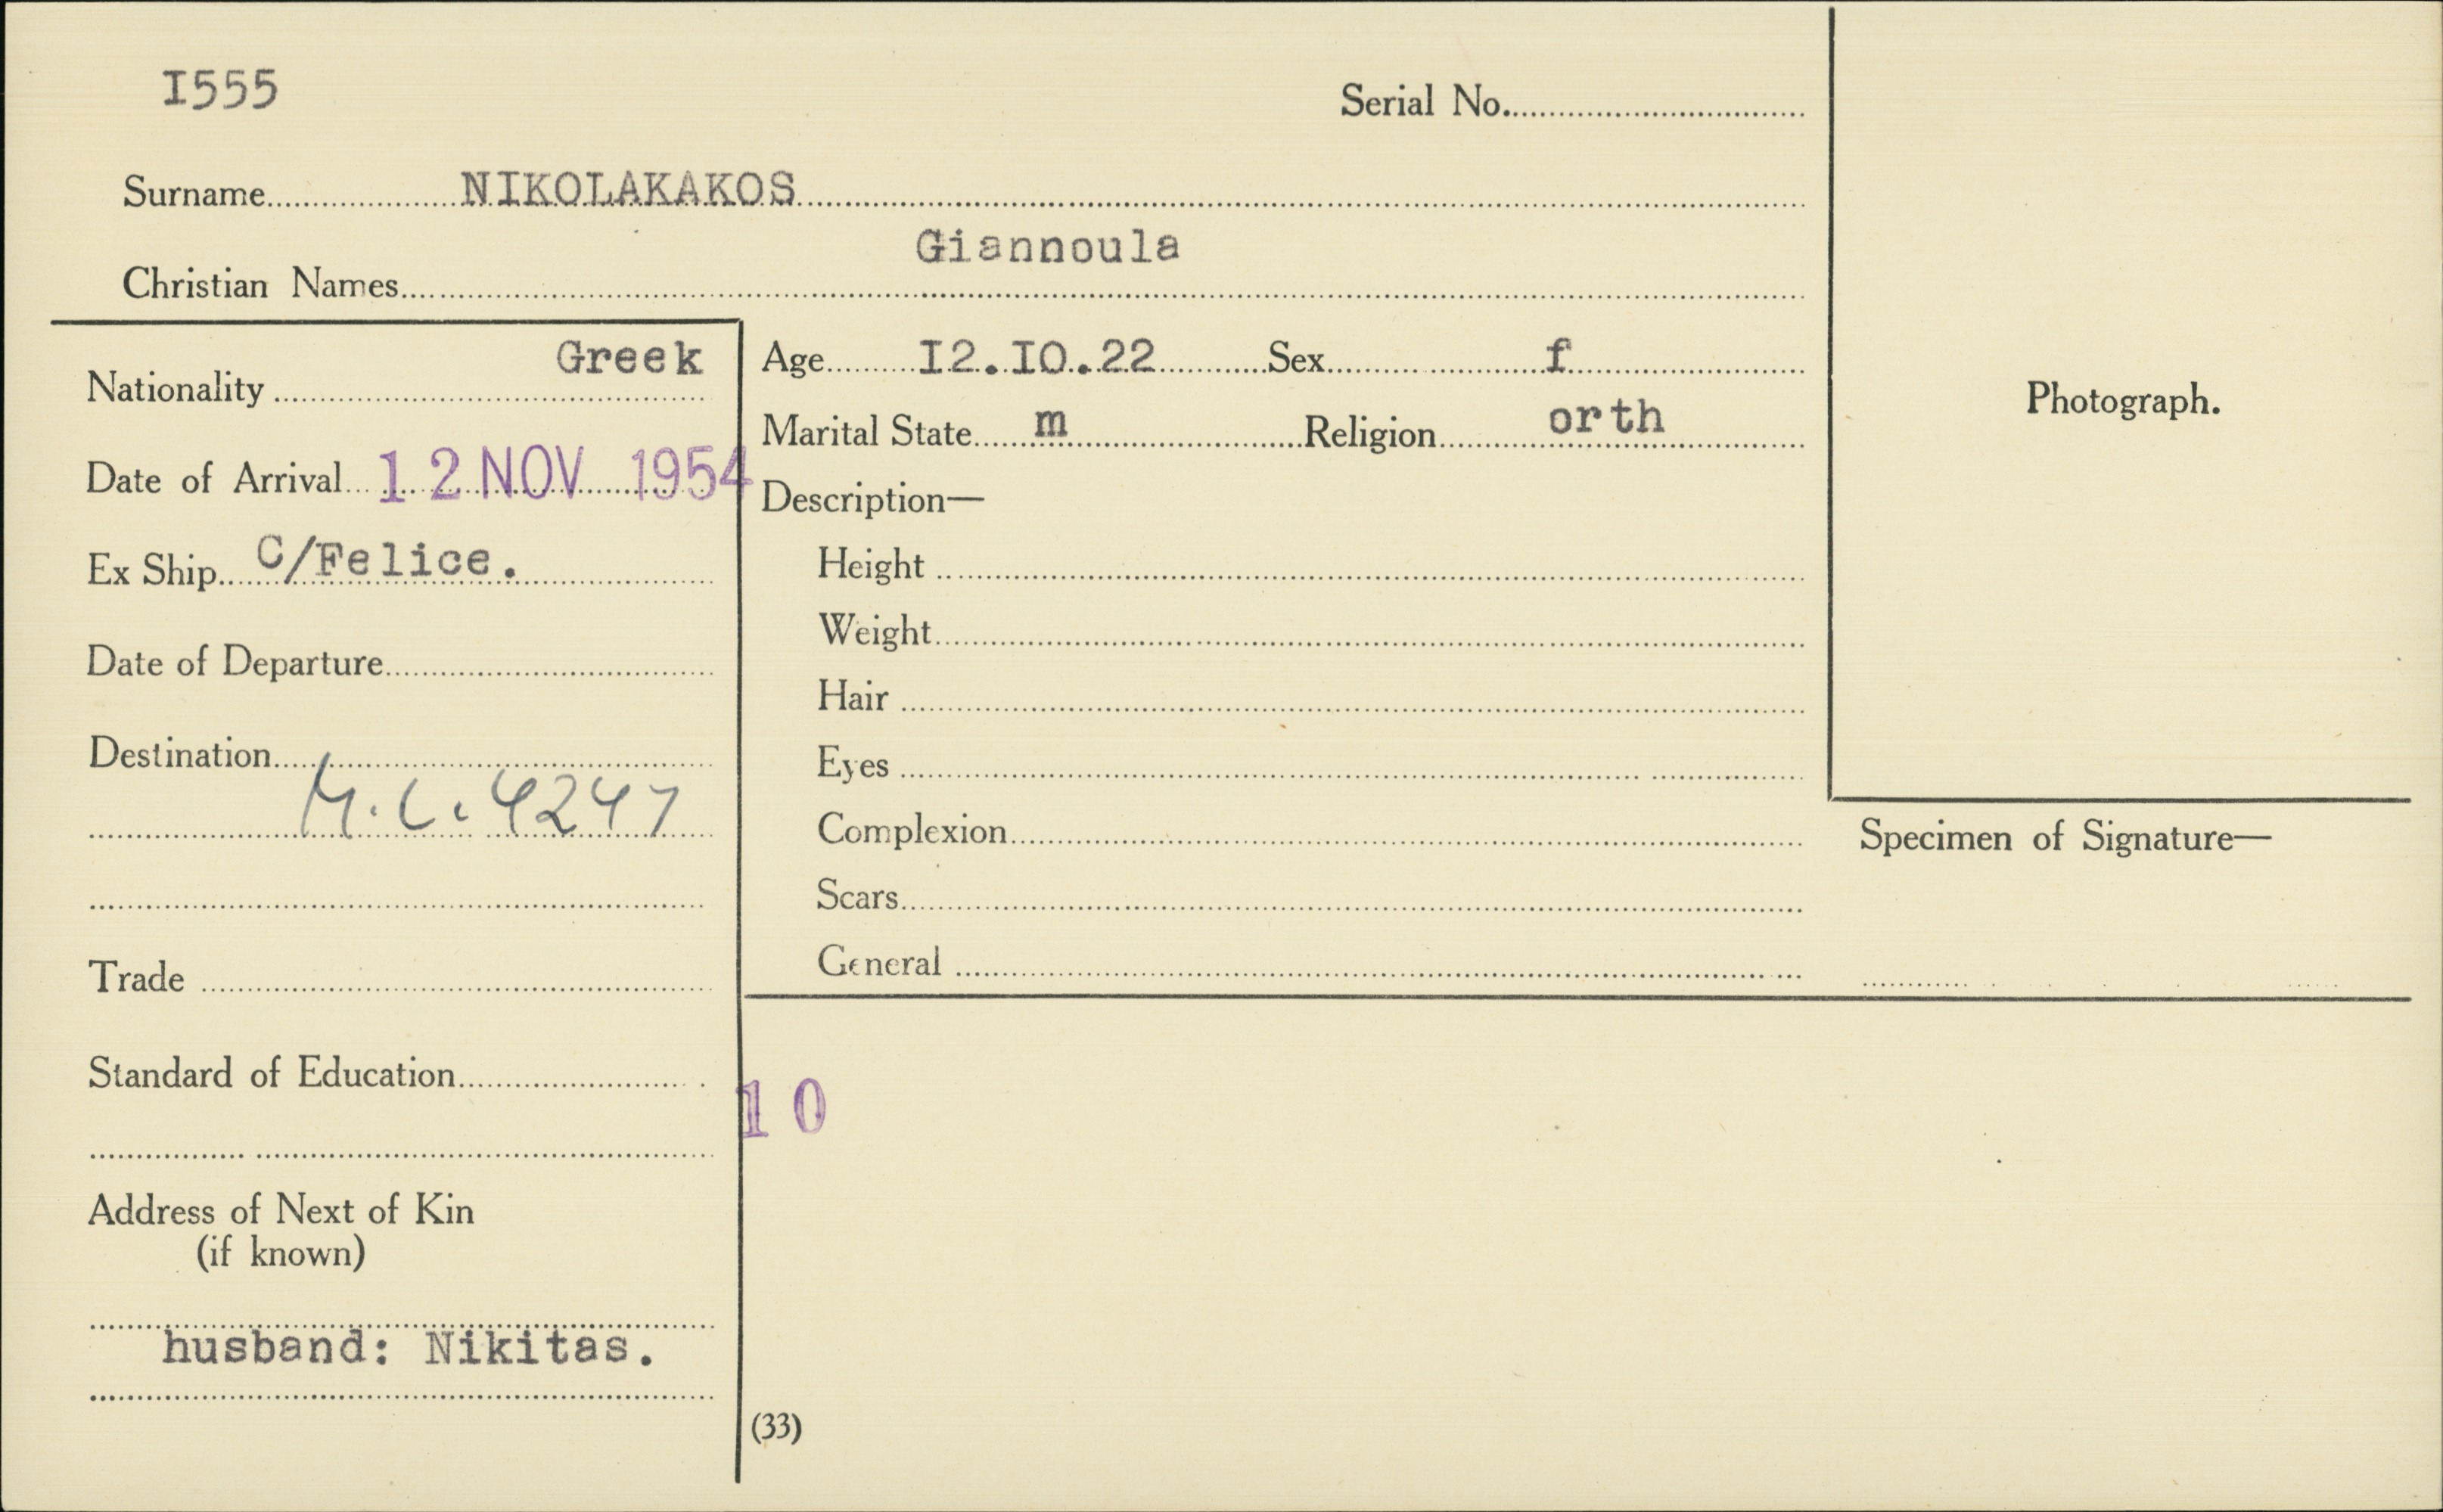 I555
Serial No.
Surname NIKOLAKAKOS
Giannoula
Christian Names
Greek
Nationality
Age I2.IO.22 Sex f
Marital State m Religion orth
Date of Arrival 12 NOV 1954
Description—
Ex Ship C/Felice.
Height
Weight
Date of Departure
Hair
Destination
Eyes
M.C. 4247
Complexion
Scars
Trade
General
Photograph.
Specimen of Signature—
Standard of Education
10
Address of Next of Kin
(if known)
husband: Nikitas.
(33)